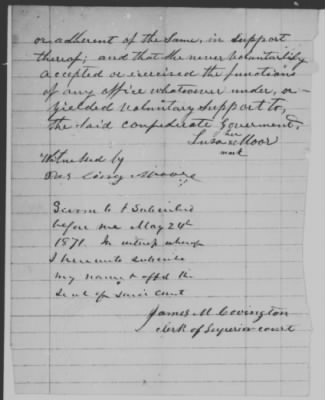 or adherent of the same, in support
therof; and that she never voluntarlily
accepted or exercised the functions
of any office whatsoever under, or
yielded voluntary support to,
the said confederate Goverment,
her
Susan Moor
mark
Witnessed by
Moore
Sworn to & Subscribed
before me May 24th
1871. In witness whereof
I hereunto subscribe
my name & affix the
seal of said court
James M Covington
clerk of Superior court